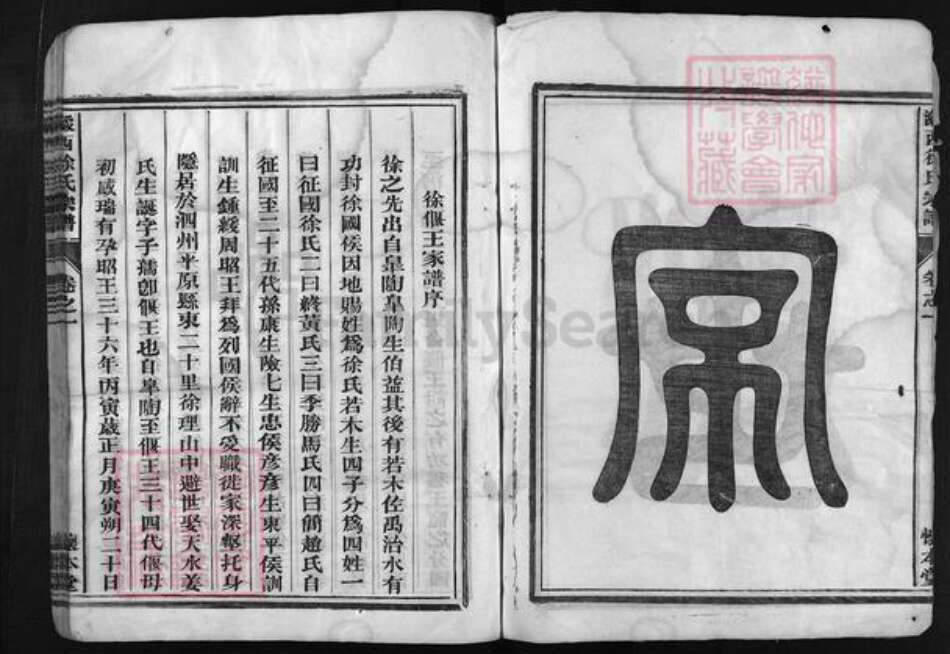 宗
澂西徐氏宗譜
卷之一
懷本堂
徐偃王家譜序
徐之先出自皐陶皐陶生伯益其後有若木佐禹治水有
功封徐國侯因地賜姓爲徐氏若木生四子分爲四姓一
曰征國徐氏二曰終黃氏三曰季勝馬氏四曰簡趙氏自
征國至二十五代孫康生險七生忠侯彥彥生東平侯訓
訓生鍾綬周昭王拜爲列國侯辭不受職徙家深壑托身
隱居於泗州平原縣東二十里徐理山中避世娶天水姜
氏生誕字子孺卽偃王也自皐陶至偃王三十四代偃母
初感瑞有孕昭王三十六年丙寅歲正月庚寅朔二十日
西徐氏宗譜
卷之一
懷本堂
FamilySearch